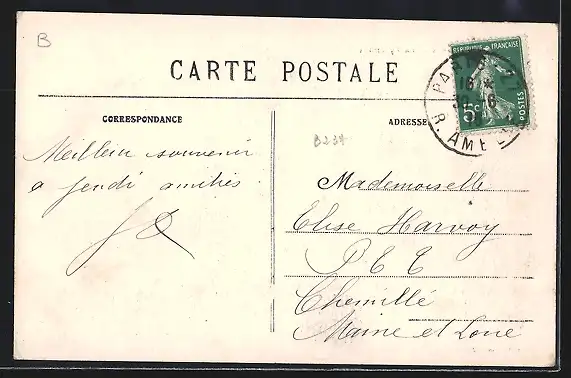 B
CARTE POSTALE
CORRESPONDANCE
ADRESSE
RÉPUBLIQUE FRANÇAISE
5c
POSTES
PARIS
R. AMEL
B234
Meilleur souvenir
a jeudi amitiés
Mademoiselle
Elise Harvoy
P T T
Chemillé
Maine et Loire